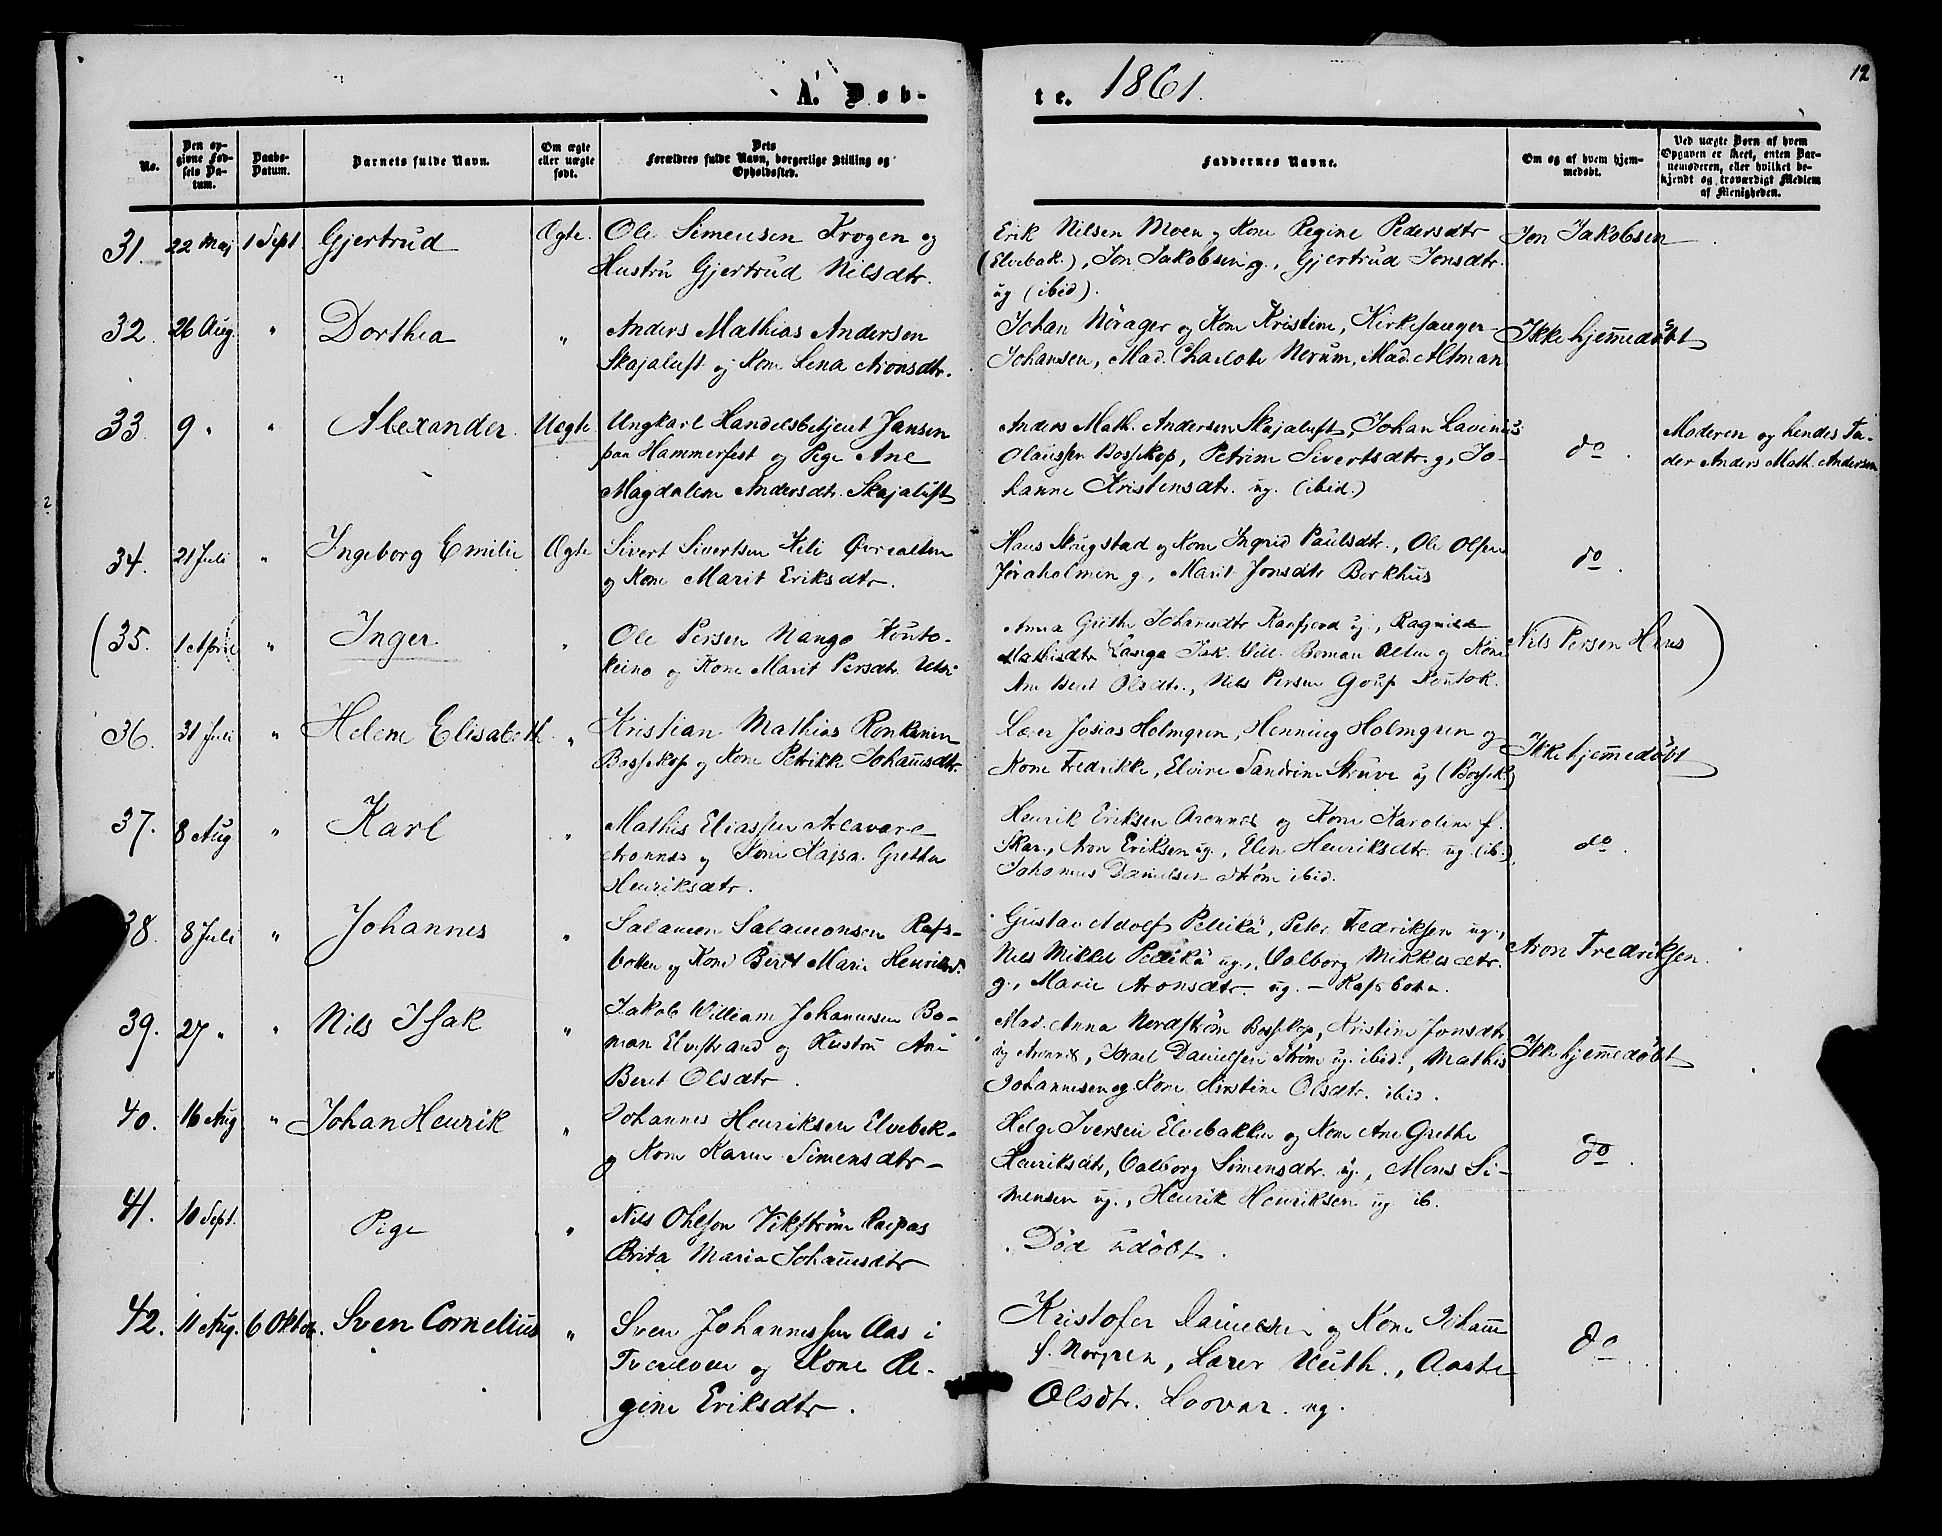 A. Døb-
te. 1861.
12
No.
Den op-
givne Fød-
sels Da-
tum.
Daabs-
Datum.
Barnets fulde Navn.
Om ægte
eller uægte
født.
Dets
Forældres fulde Navn, borgerlige Stilling og
Opholdssted.
Faddernes Navne.
Om og af hvem hjem-
medøbt.
Ved uægte Børn af hvem
Opgaven er skeet, enten Bar-
nemoderen, eller hvilket be-
kjendt og troværdigt Medlem
af Menigheden.
31. 22 Maj 1 Sept Gjertrud Ægte. Ole Simensen Krogen og
Hustru Gjertrud Nilsdtr.
Erik Nilsen Moen og Kone Regine Pedersdtr
(Elvebak.), Jon Jakobsen g., Gjertrud Jonsdtr.
ug (ibid).
Jon Jakobsen
32. 26 Aug. " Dorthea " Anders Mathias Andersen
Skajaluft og Kone Lena Aronsdtr.
Johan Nörager og Kone Kristine, Kirkesanger
Johansen, Mad. Charlotte Nerum, Mad. Altman
Ikke hjemmedøbt
33. 9 " " Alexander. Uægte. Ungkarl Handelsbetjent Jansen
paa Hammerfest og Pige Ane
Magdalene Andersdtr. Skajaluft
Anders Math. Andersen Skajaluft, Johan Lavinius
Olaussen Bossekop, Petrine Sivertsdtr. g, Jo-
hanne Kristensdtr. ug. (ibid.)
do.
Moderen og hendes Fa-
der Anders Math. Andersen
34. 21 Juli " Ingeborg Emilie Ægte Sivert Sivertsen Øvrealten
og Kone Marit Eriksdtr.
Hans Skrugstad og Kone Ingrid Paulsdtr., Ole Olsen
Jøraholmen g, Marit Jonsdtr Borkhus
do.
(35. 1 April " Inger " Ole Persen Nango Kouto-
keino og Kone Marit Persdtr. Utsi
Anna Grethe Johansdtr Kaafjord ug., Ragnild
Mathisdtr Jak. Will. Boman Alten og Kone
Ane Berit Olsdtr., Nils Persen Koutok.
Nils Persen )
36. 31 Juli " Helene Elisabeth " Kristian Mathias Ronkainen
Bossekop og Kone Petrikke Johannsdtr.
Lærer Josias Holmgren, Henning Holmgren og
Kone Fredrikke, Elvire Sandrine Struve ug (Bossek)
Ikke hjemmedøbt
37. 8 Aug " Karl " Mathis Eliassen
Aronnes og Kone Kajsa Grethe
Henriksdtr.
Henrik Eriksen Aronnes og Kone Karoline f.
Skar., Aron Eriksen ug., Elen Henriksdtr. ug (ib.)
Johannes Danielsen Strøm ibid.
do.
38. 8 Juli " Johannes " Salamon Salamonsen Rafs-
botten og Kone Berit Marie Henriksd.
Gustav Adolf Pellikä, Peter Fredriksen ug.,
Nils Mikkel Pellikä ug., Valborg Mikkelsdtr.
g., Marie Aronsdtr. ug. - Rafsboten.
Aron Fredriksen.
39. 27 " " Nils Isak " Jakob William Johannesen Bo-
man Elvestrand og Hustru Ane
Berit Olsdtr.
Mad. Anna Nordstrøm Bossekop, Kristine Jonsdtr
ug Aronnes, Israel Danielsen Strøm ug. ibid., Mathis
Johannesen og Kone Kirstine Olsdtr. ibid.
Ikke hjemmedøbt
40. 16 Aug " Johan Henrik " Johannes Henriksen Elvebak.
og Kone Karen Simensdtr
Helge Iversen Elvebakken og Kone Ane Grethe
Henriksdtr, Valborg Simensdtr. ug., Mons Si-
mensen ug., Henrik Henriksen ug. ib.
do.
41. 10 Sept. Pige " Nils Ohlson Vikstrøm Raipas
Brita Maria Johannsdtr
Død udøbt.
42. 11 Aug. 6 Oktob. Sven Cornelius " Sven Johannessen Aas i
Tverelven og Kone Re-
gine Eriksdtr.
Kristofer Danielsen og Kone Johann
f. Norgren, Lærer Heith., Aaste
Olsdtr. Loovar. ug.
do